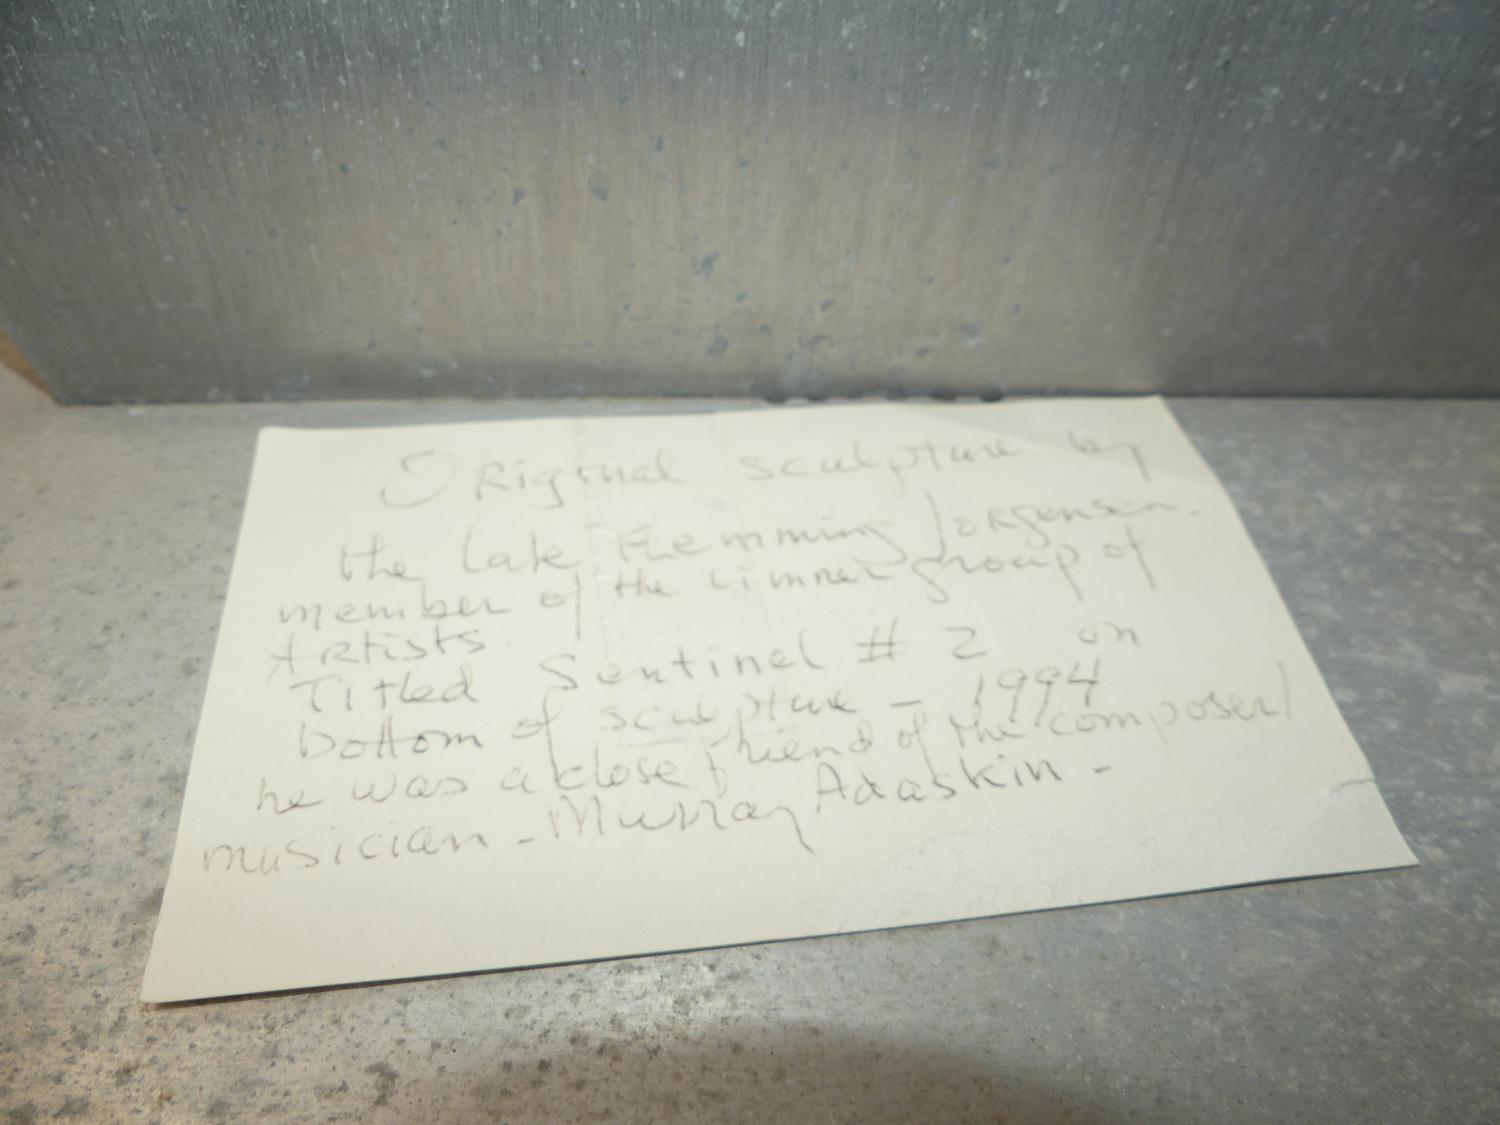 Original sculpture by
the late Flemming Jorgensen.
member of the Limner group of
Artists.
Titled Sentinel # 2 on
bottom of sculpture - 1994
he was a close friend of the composer/
musician - Murray Adaskin -